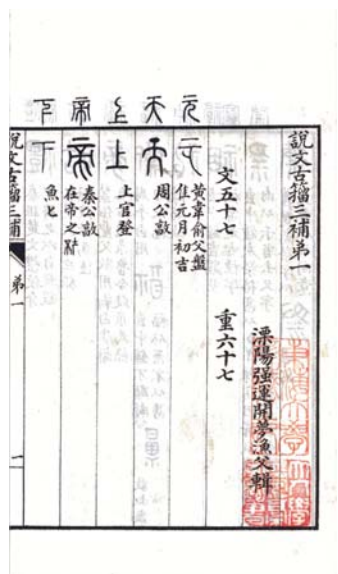 說文古籀三補弟一
溧陽強運開夢漁父輯
文五十七 重六十七
元 黃韋俞父盤
隹元月初吉
天 周公𣪘
上 上官登
帝 秦公𣪘
在帝之
下 魚匕
說文古籀三補 弟一 一